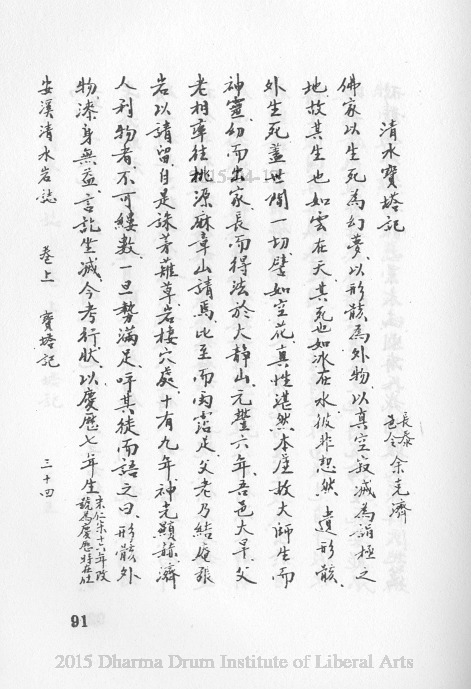 清水寶塔記
長泰邑令 余克濟
佛家以生死為幻夢、以形骸為外物、以真空寂滅為詣極之
地、故其生也如雲在天、其死也如冰在水、彼非恝然、遺形骸、
外生死、蓋世間一切、譬如空花、真性湛然、本○故大師生而
神靈、幼而出家、長而得法於大靜山、元豐六年、吾邑大旱、父
老相率往桃源麻章山請焉、比至而雨霑足、父老乃結庵張
岩以請留、自是誅茅薙草、岩棲穴處、十有九年、神光顯赫、濟
人利物者、不可縷數、一旦○滿足、呼其徒而語之曰、形骸外
物、漆身無益、言訖坐滅、今考行狀、以慶歷七年生 宋仁宗十六年改號為慶歷時在位
安溪清水岩誌 卷上 寶塔記 三十四
91
2015 Dharma Drum Institute of Liberal Arts